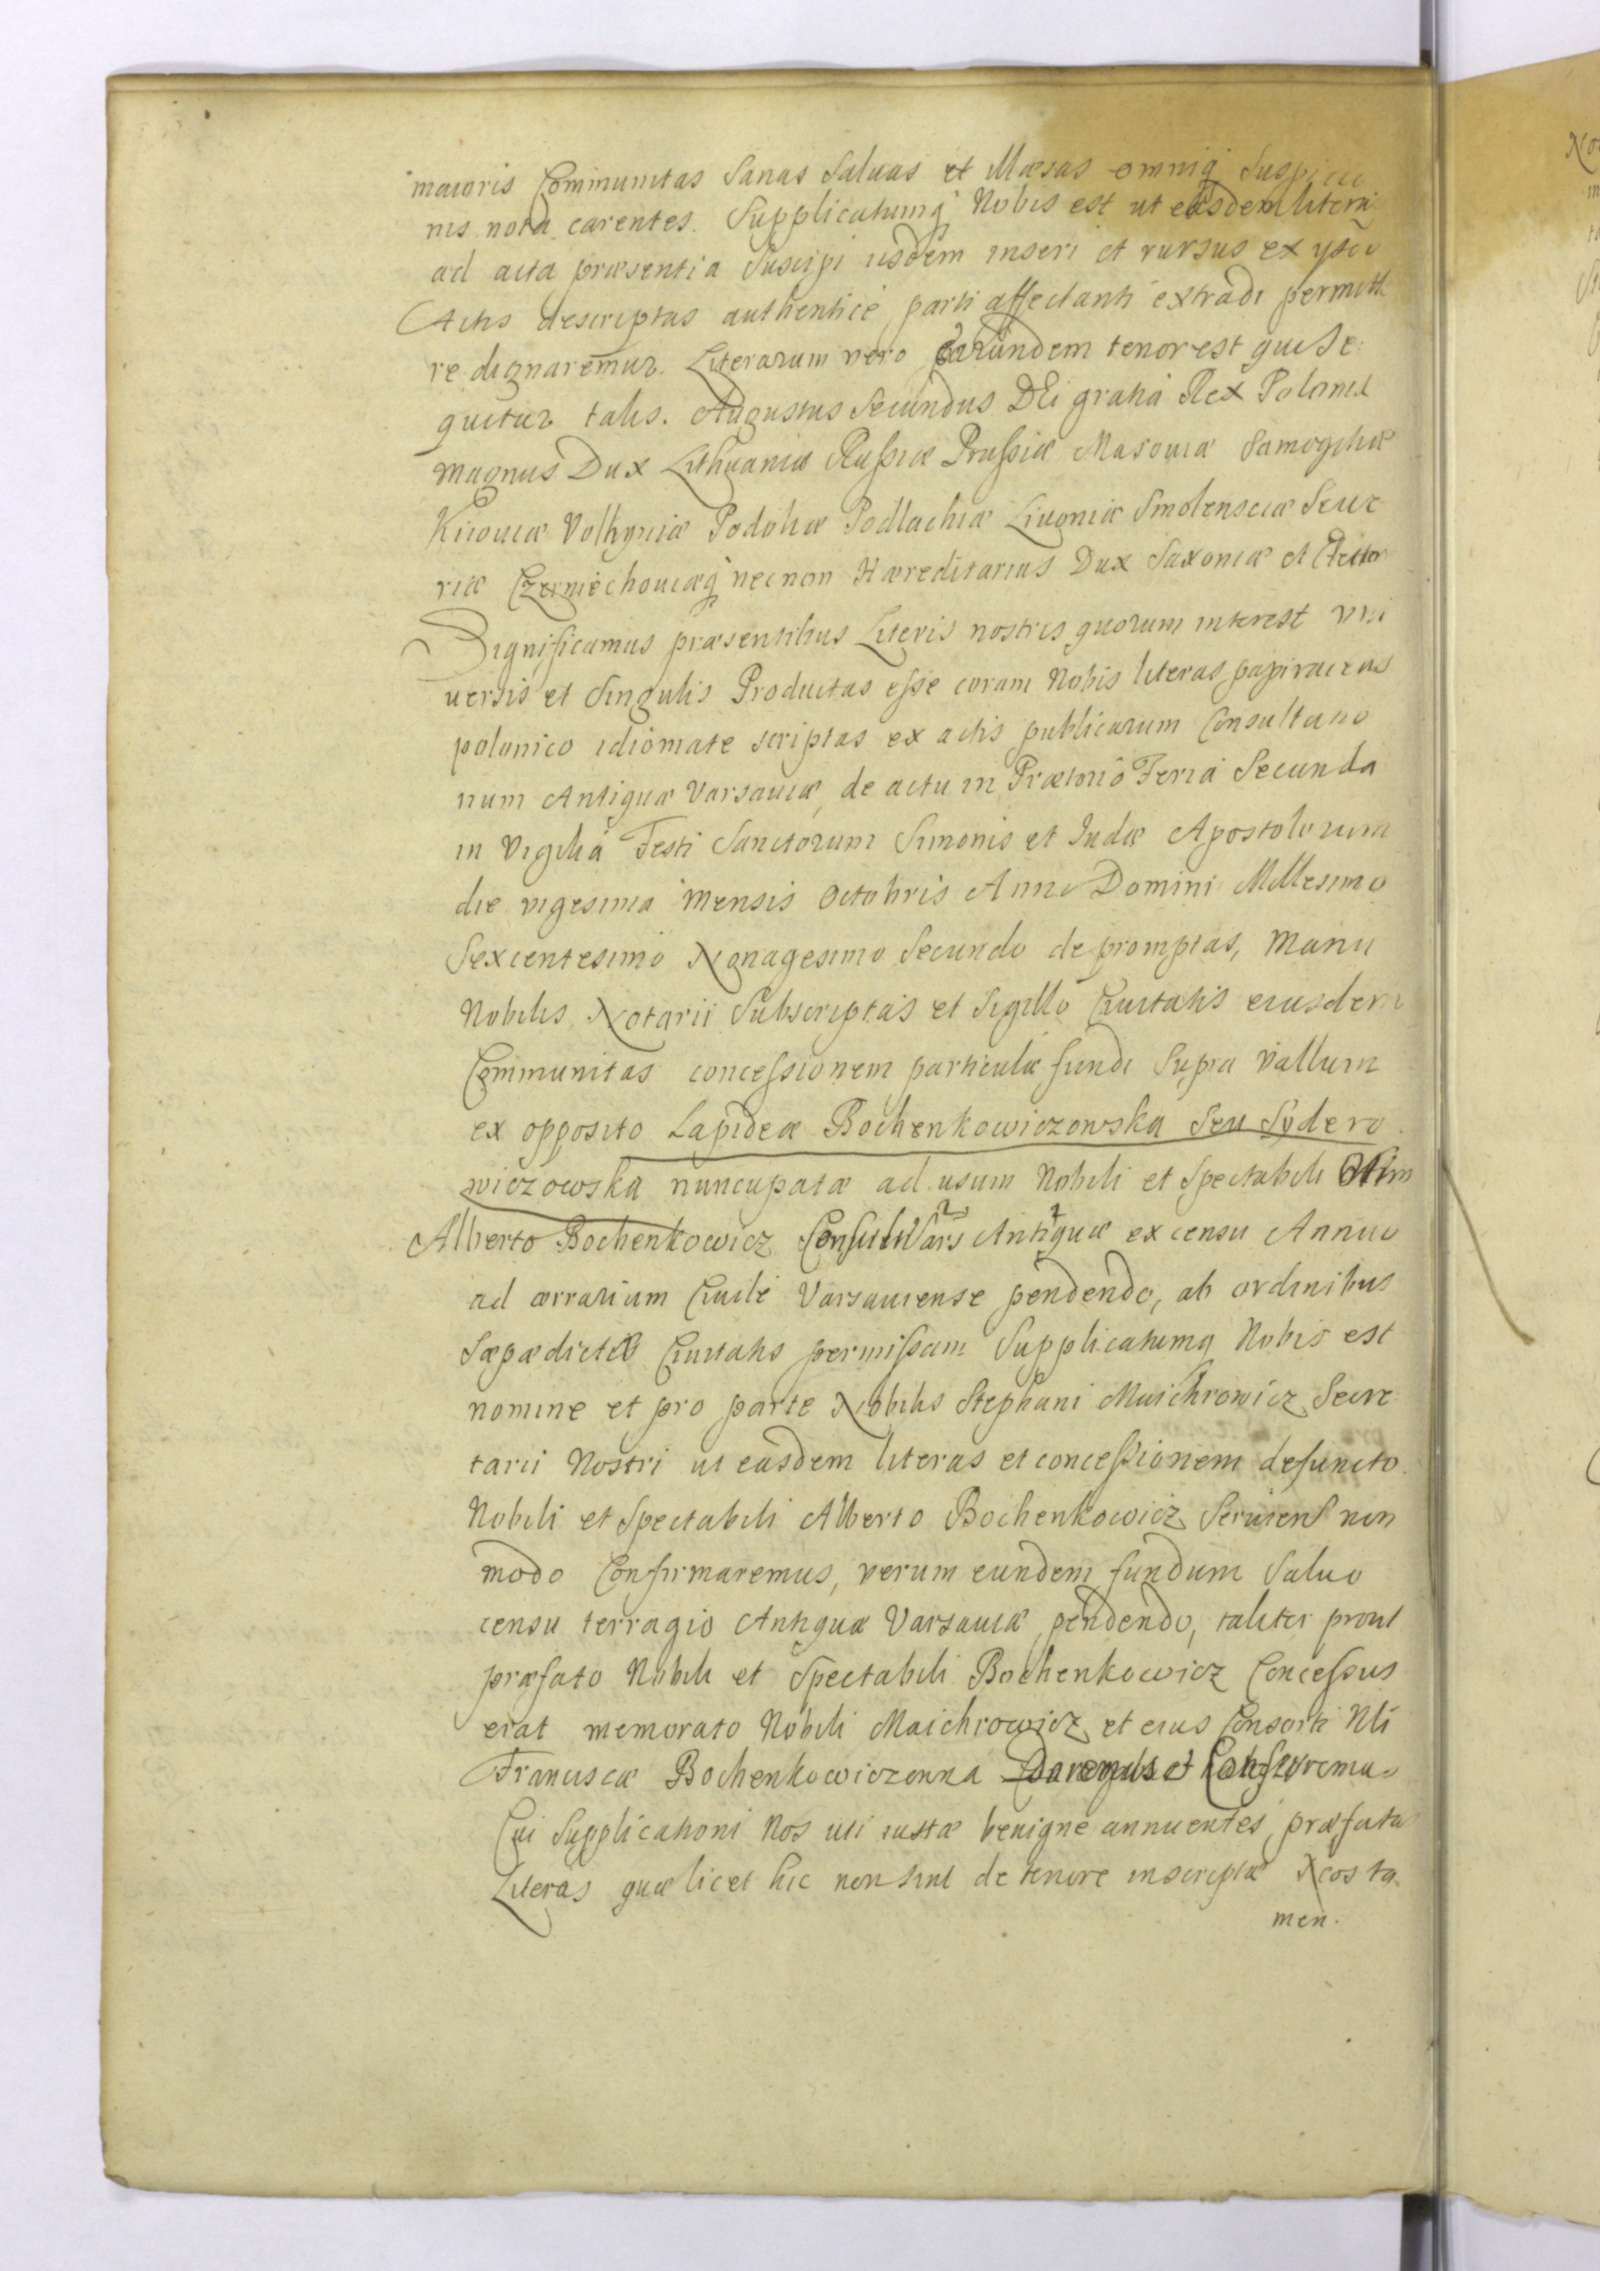 maioris Communitas Sanas Saluas et Illæsas omniq Suspicio
nis nota carentes. Supplicatumq Nobis est ut easdem literas
ad acta præsentia Suscipi iisdem inseri et rursus ex ysdē
Actis descriptas authenticè parti affectanti extradi permitte
re dignaremur. Literarum vero Earundem tenor est qui Se
quitur talis. Augustus Secundus DEi gratiâ Rex Poloniæ
magnus Dux Lithuaniæ Rußiæ Prußiæ Masouiæ Samogitiæ
Kiiouiæ Volhyniæ Podoliæ Podlachiæ Liuoniæ Smolensciæ Seue
riæ Czerniechouiæq necnon Hæreditarius Dux Saxoniæ et Elector
Significamus præsentibus Literis nostris quorum interest vni
uersis et Singulis Productas eße coram Nobis literas papiraceas
polonico idiomate scriptas ex actis publicarum Consultatio
num Antiquæ Varsauiæ, de actu in Prætoriô Feria Secunda
in Vigiliâ Festi Sanctorum Simonis et Iudæ Apostolorum
die vigesima mensis Octobris Anno Domini Millesimo
Sexcentesimo Nonagesimo Secundo depromptas, manu
Nobilis Notarii Subscriptas et Sigillô Ciuitatis eiusdem
Communitas conceßionem particulæ fundi Supra Vallum
ex opposito Lapideæ Bochenkowiczowska Seu Sydero
wiczowska nuncupatæ ad usum Nobili et Spectabili Olim
Alberto Bochenkowicz Consuli Vars Antiquæ ex censu Annuo
ad ærrarium Ciuile Varsauiense pendendo, ab ordinibus
Sæpædictæ Ciuitatis permißam Supplicatumq Nobis est
nomine et pro parte Nobilis Stephani Maichrowicz Secre
tarii Nostri ut easdem literas et conceßionem defuncto
Nobili et Spectabili Alberto Bochenkowicz Seruiens non
modo Confirmaremus, verum eundem fundum Saluo
censu terragio Antiquæ Varsauiæ pendendo, taliter prout
præfato Nobili et Spectabili Bochenkowicz Conceßus
erat memorato Nobili Maichrowicz et eius Consorti Nli
Franciscæ Bochenkowiczonna Daremus et Conferremus
Cui Supplicationi Nos uti iustæ benigne annuentes, præfatas
Literas quæ licet hic non sint de tenore inscriptæ Nos ta
men.